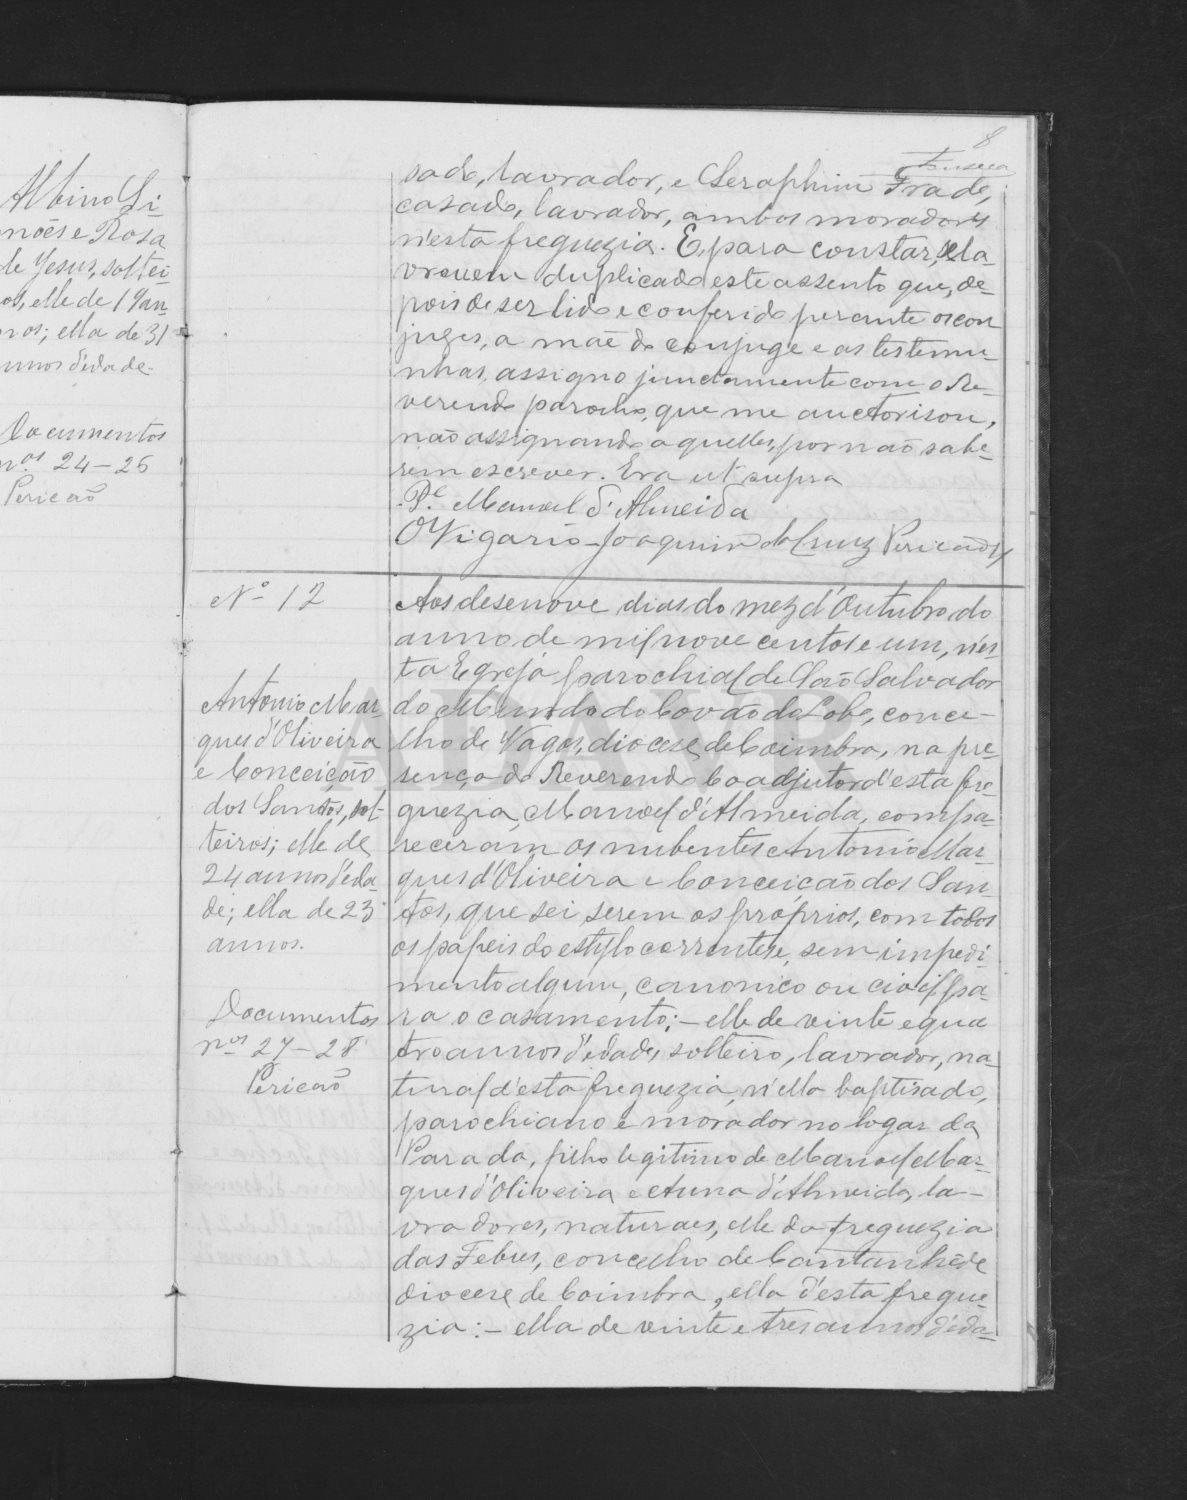 8
Fonseca
Albino Si-
mões e Rosa
de Jesus, soltei-
ros, elle de 19 an-
nos; ella de 31
annos d'edade.
Documentos
nos 24-26
Pericão
sado, lavrador, e Seraphim Frade,
casado, lavrador, ambos moradores
n'esta freguezia. E, para constar, se la-
vrou em duplicado este assento que, de-
pois de ser lido e conferido perante os con
juges, a mãe do conjuge e as testemu-
nhas, assigno junctamente com o Re-
verendo parocho, que me auctorisou,
não assignando aquelles, por não sabe-
rem escrever. Era ut supra
Pe. Manoel d'Almeida
O Vigario Joaquim da Cruz Pericão
Nº 12
Antonio Mar-
ques d'Oliveira
e Conceição
dos Santos, sol-
teiros; elle de
24 annos d'eda-
de; ella de 23
annos.
Documentos
nos 27-28
Pericão
Aos desenove dias do mez d'Outubro do
anno de mil nove centos e um, n'es-
ta Egreja parochial de São Salvador
do Mundo do Covão do Lobo, conce-
lho de Vagos, diocese de Coimbra, na pre-
sença do Reverendo Coadjutor d'esta fre-
guezia, Manoel d'Almeida, compa-
receram os nubentes Antonio Mar-
ques d'Oliveira e Conceição dos San
tos, que sei serem os próprios, com todos
os papeis do estylo correntes e, sem impedi-
mento algum, canonico ou civil, pa-
ra o casamento; - elle de vinte e qua
tro annos d'edade, solteiro, lavrador, na-
tural d'esta freguezia, n'ella baptisado,
parochiano e morador no logar da
Parada, filho legitimo de Manoel Mar-
ques d'Oliveira e Anna d'Almeida, la-
vradores, naturaes, elle da freguezia
das Febres, concelho de Cantanhede
diocese de Coimbra, ella d'esta fregue-
zia: - ella de vinte e tres annos d'eda-